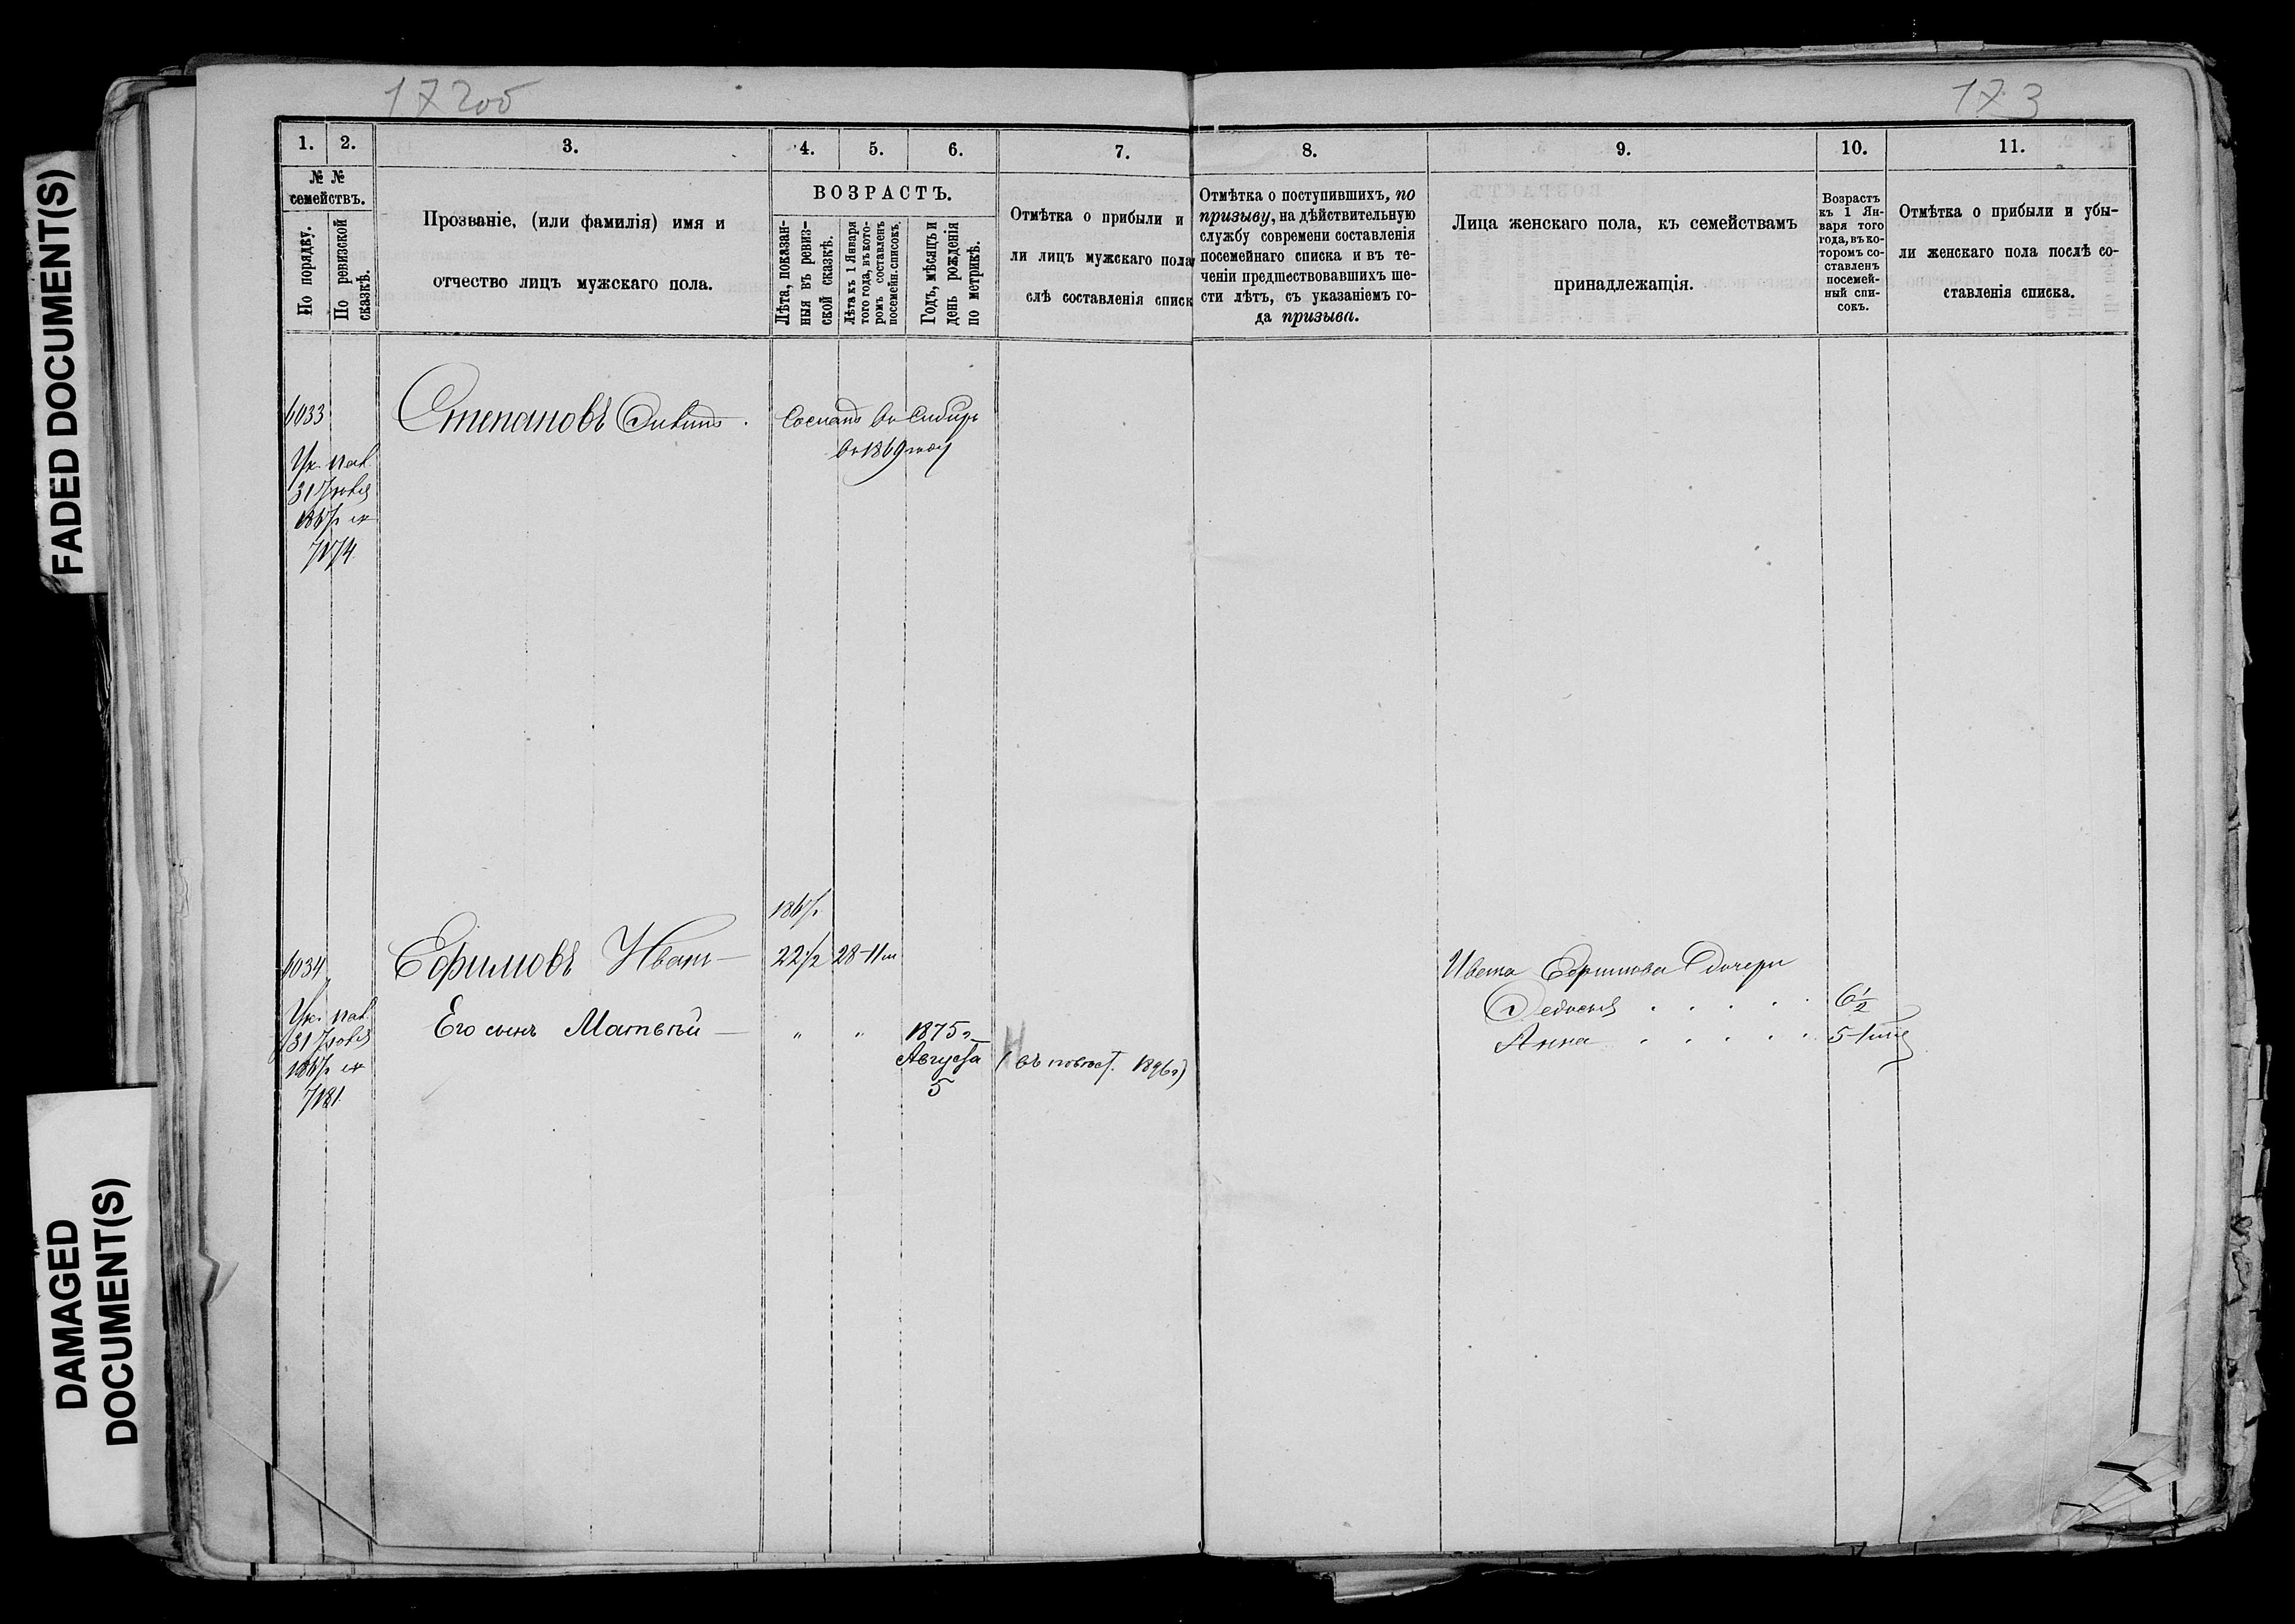 FADED DOCUMENT(S)
DAMAGED
DOCUMENT(S)
172об
173
1. 2. 3. 4. 5. 6. 7. 8. 9. 10. 11.
№ №
семействъ.
По порядку.
По ревизской
сказкѣ.
Прозваніе, (или фамилія) имя и
отчество лицъ мужскаго пола.
ВОЗРАСТЪ.
Лѣта, показан-
ныя въ ревиз-
ской сказкѣ.
Лѣта къ 1 Января
того года, въ кото-
ромъ составленъ
посемейн. списокъ.
Годъ, мѣсяцъ и
день рожденія
по метрикѣ.
Отмѣтка о прибыли и
ли лицъ мужскаго пола
слѣ составленія списк
Отмѣтка о поступившихъ, по
призыву, на дѣйствительную
службу современи составленія
посемейнаго списка и въ те-
ченіи предшествовавшихъ ше-
сти лѣтъ, съ указаніемъ го-
да призыва.
Лица женскаго пола, къ семействамъ
принадлежащія.
Возрастъ
къ 1 Ян-
варя того
года, въ ко-
торомъ со-
ставленъ
посемей-
ный спи-
сокъ.
Отмѣтка о прибыли и убы-
ли женскаго пола послѣ со-
ставленія списка.
6033 Степановъ Сосланъ въ Сибирь
въ 1869 году
Ук. пал.
31
7174
6034 Ефимовъ Иванъ 22 1/2 28-11 м
Ивана Ефимова дочери
Ук. пал.
31
7181
Его сынъ Матвѣй " " 1875 г.
Августа
5
(въ повѣст. 1896 г)
Федосья 6 1/2
Анна